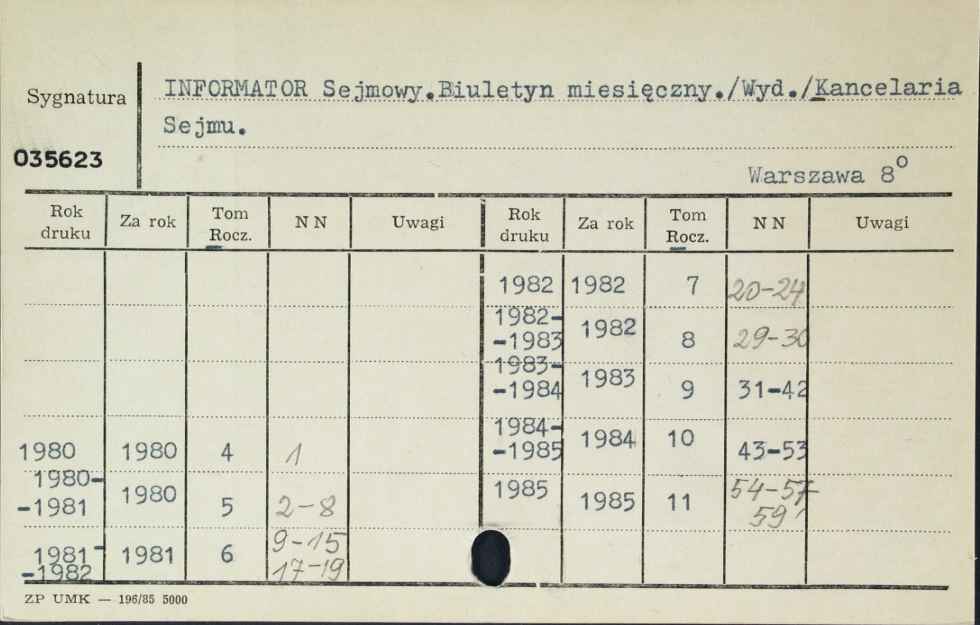 INFORMATOR Sejmowy.Biuletyn miesięczny./Wyd./Kancelaria
Sygnatura
Sejmu.
035623
Warszawa 8°
Rok druku Za rok Tom Rocz. NN Uwagi Rok druku Za rok Tom Rocz. NN Uwagi
1982 1982 7 20-24
1982-
-1983 1982 8 29-30
1983-
-1984 1983 9 31-42
1984-
-1985 1984 10 43-53
1980 1980 4 1
1985 1985 11 54-57
59
1980-
-1981 1980 5 2-8
1981-
-1982 1981 6 9-15
17-19
ZP UMK — 196/85 5000